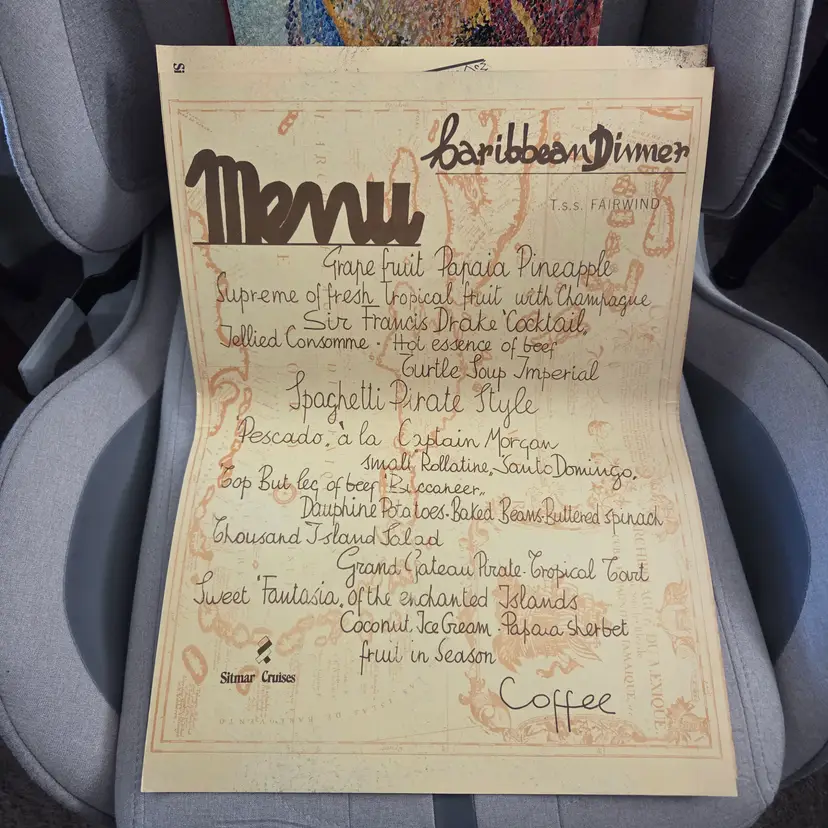 Caribbean Dinner
Menu
T.s.s. FAIRWIND
Grapefruit Papaia Pineapple
Supreme of fresh Tropical fruit with Champagne
Sir Francis Drake "Cocktail"
Jellied Consomme - Hot essence of beef
Turtle Soup Imperial
Spaghetti Pirate Style
"Pescado" à la Captain Morgan
small "Rollatine" Santo Domingo"
Top But leg of beef "Buccaneer"
Dauphine Potatoes - Baked Beans - Buttered spinach
Thousand Island Salad
Grand Gateau Pirate - Tropical Tart
Sweet "Fantasia" of the enchanted Islands
Coconut Ice Cream - Papaia Sherbet
fruit in Season
Sitmar Cruises
Coffee